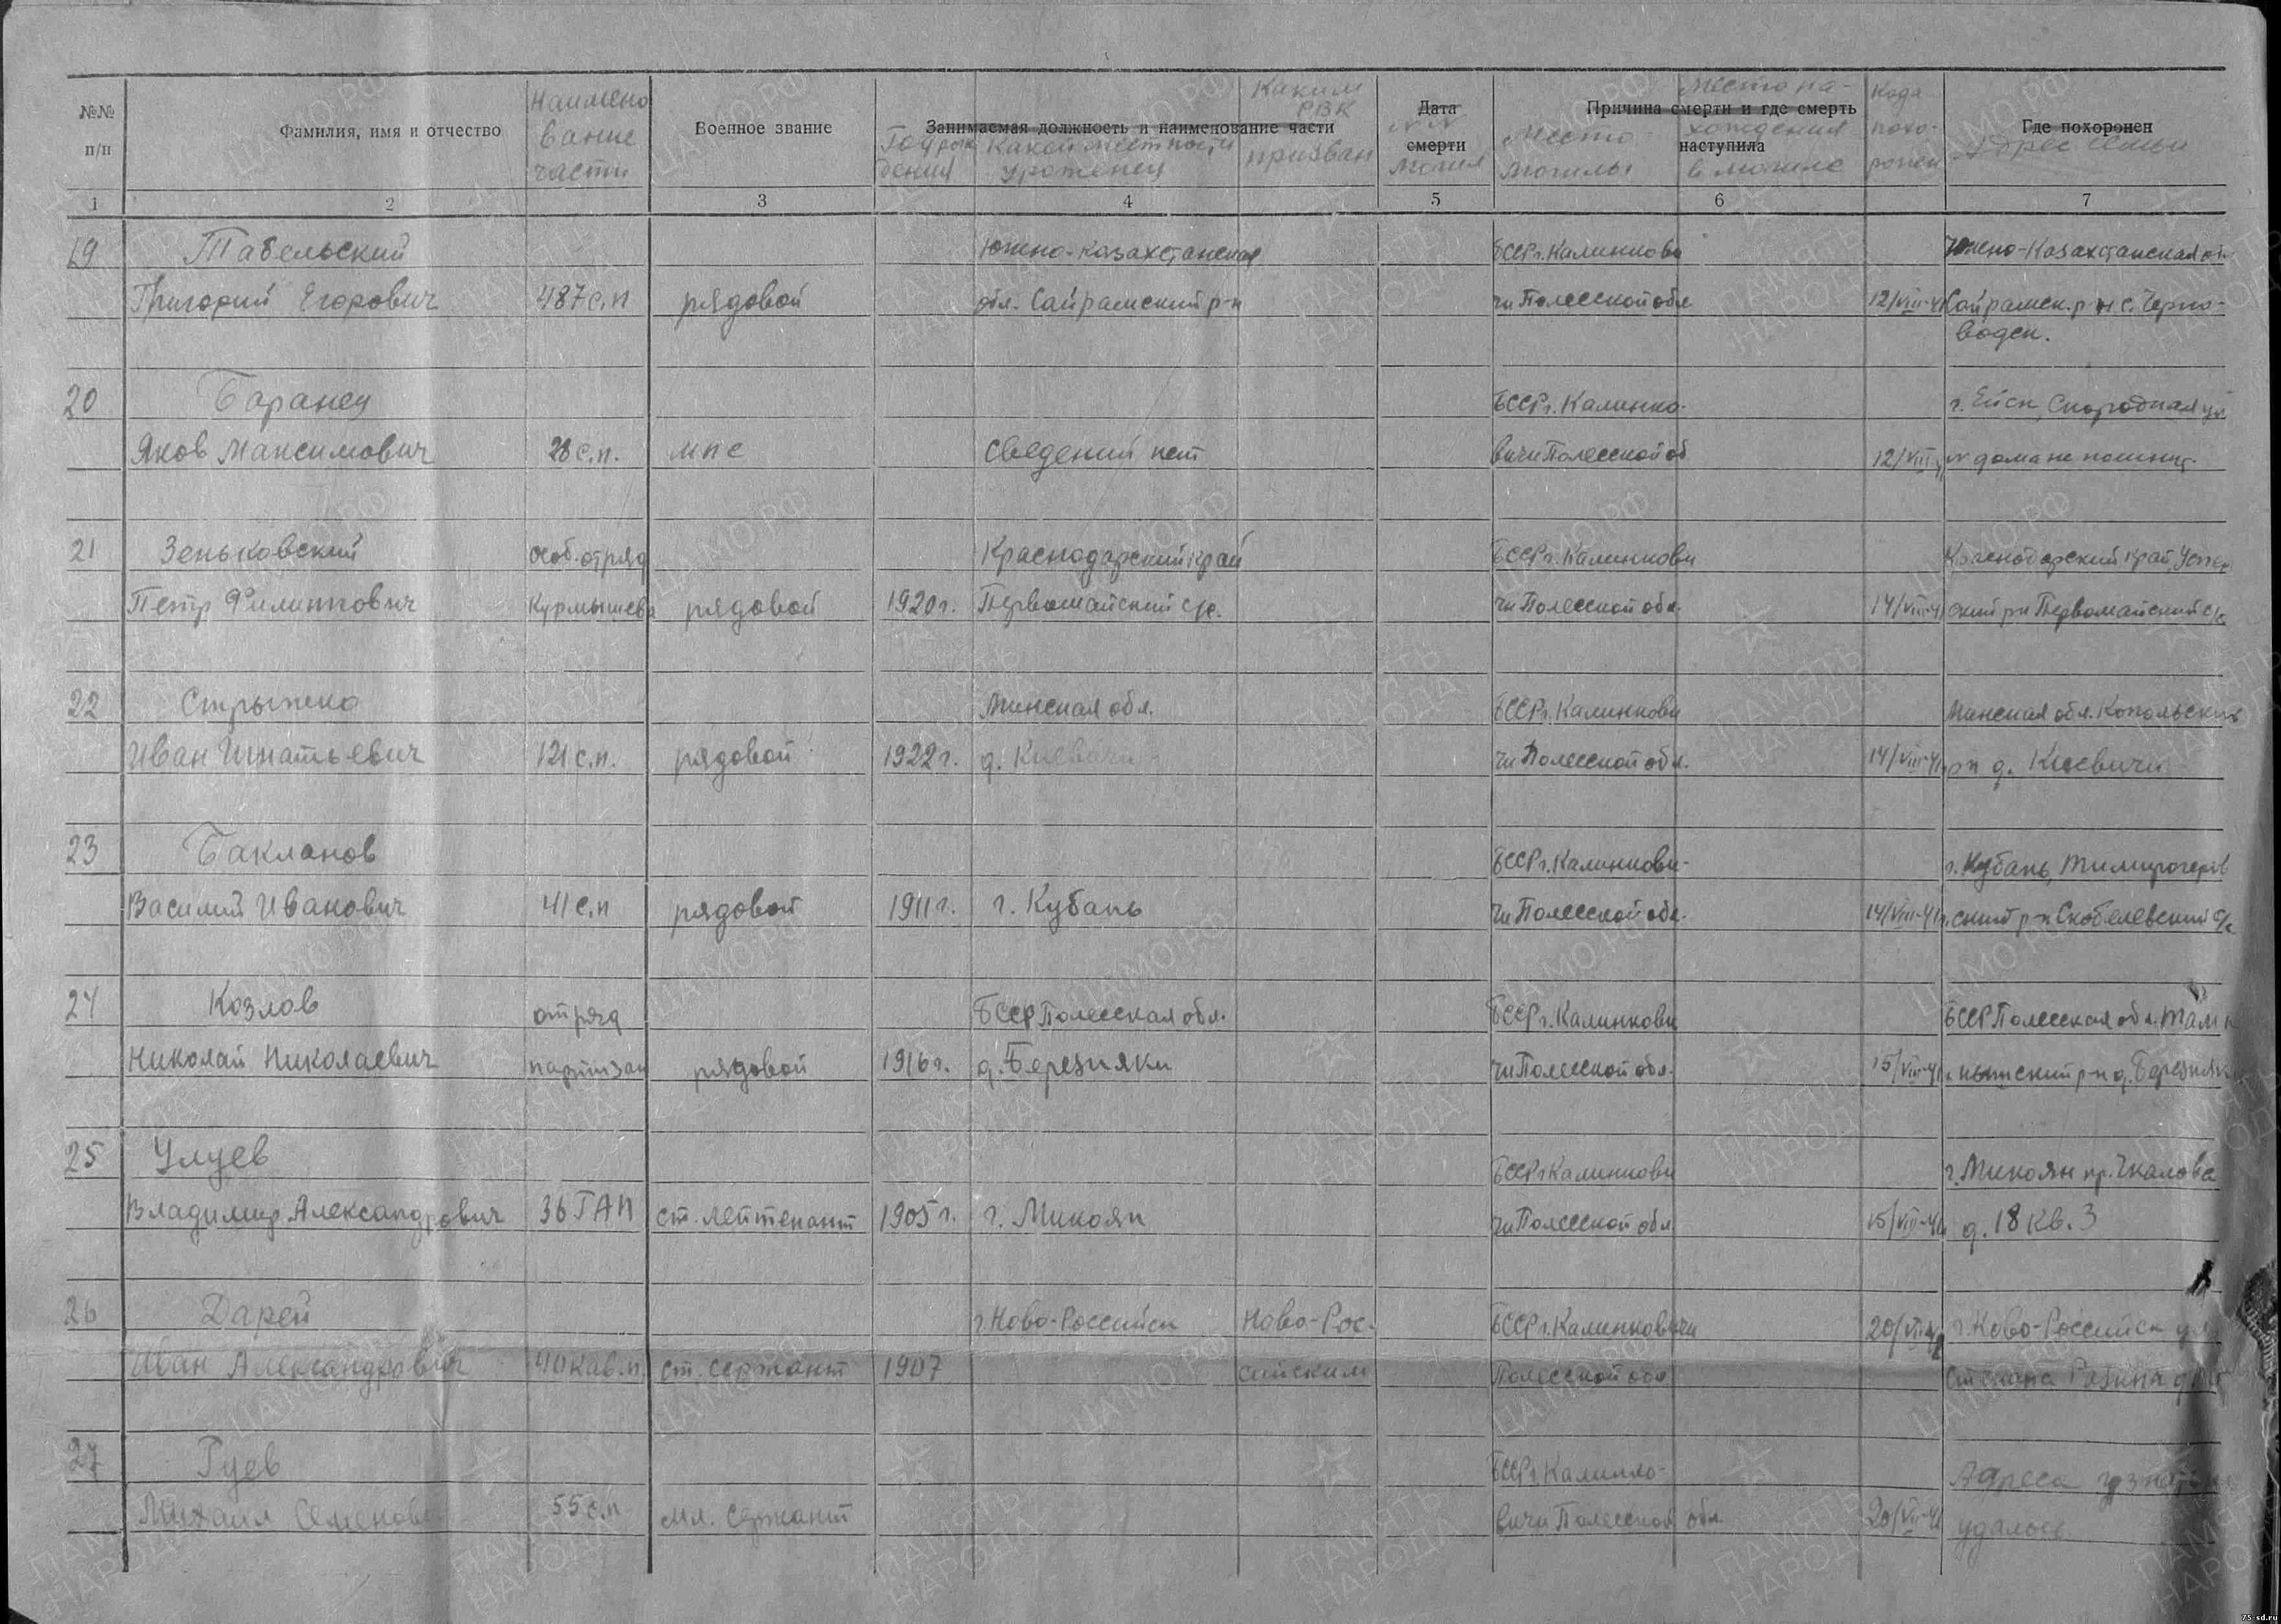 №№ п/п
Фамилия, имя и отчество
Наименование части
Военное звание
Занимаемая должность и наименование части
Год рождения
Какой местности уроженец
Каким РВК призван
Дата смерти
№№ могил
Причина смерти и где смерть наступила
Место могилы
Место нахождения в могиле
Когда похоронен
Где похоронен
Адрес семьи
1 2 3 4 5 6 7
19 Табельский Южно-Казахстанская БССР г. Калинкови Южно-Казахстанская об
Григорий Егорович 487 с.п рядовой обл. Сайрамский р-н чи Полесской обл 12/VIII-41 Сайрамск. р-н с. Черно-
водск.
20 Баранец БССР г. Калинко- г. Ейск, Скородная ул
Яков Максимович 28 с.п. мпс сведений нет вичи Полесской об 12/VIII № дома не помнит.
21 Зеньковский особ. отряд Краснодарский край БССР г. Калинкови Краснодарский край, Успен
Петр Филиппович Курмышева рядовой 1920 г. Первомайский с/с. чи Полесской обл. 14/VIII-41 ский р-н Первомайский с/с
22 Стрыжко Минская обл. БССР г. Калинкови Минская обл. Копольский
Иван Игнатьевич 121 с.п. рядовой 1922 г. д. Киевичи чи Полесской обл. 14/VIII-41 р-н д. Киевичи
23 Бакланов БССР г. Калинкови- г. Кубань,
Василий Иванович 41 с.п рядовой 1911 г. г. Кубань чи Полесской обл. 14/VIII-41 ский р-н Скобелевский с/с
24 Козлов отряд БССР Полесская обл. БССР г. Калинкови БССР Полесская обл.
Николай Николаевич партизан рядовой 1916 г. д. Березняки чи Полесской обл. 15/VIII-41 р-н д. Березняки
25 Улуев БССР г Калинкови г. Микоян пр. Чкалова
Владимир Александрович 36 ГАП ст. лейтенант 1905 г. г. Микоян чи Полесской обл 15/VIII-41 д. 18 кв. 3
26 Дарей г. Ново-Российск Ново-Рос- БССР г. Калинковичи 20/VIII-41 г. Ново-Российск ул
Иван Александрович 40 кав.п. ст. сержант 1907 сийским Полесской обл Степана Разина
27 Гуев БССР г. Адреса узнать не
Михаил 55 с.п мл. сержант вичи Полесской обл. 20/VIII-41 удалось
ПАМЯТЬ НАРОДА
ЦАМО.РФ
75-sd.ru